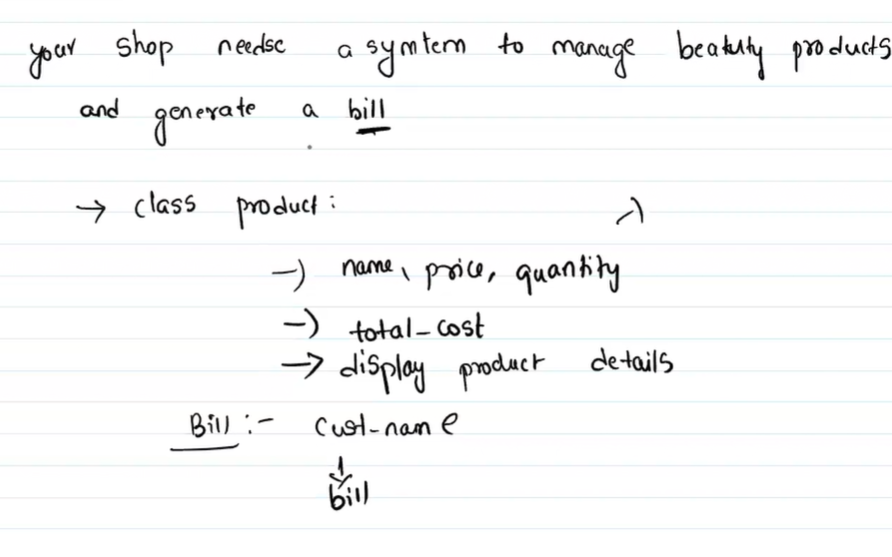 your shop needsc a symtem to manage beatuty products
and generate a bill
→ class product:
→ name, price, quantity
→ total_cost
→ display product details
Bill :- Cust-name
bill